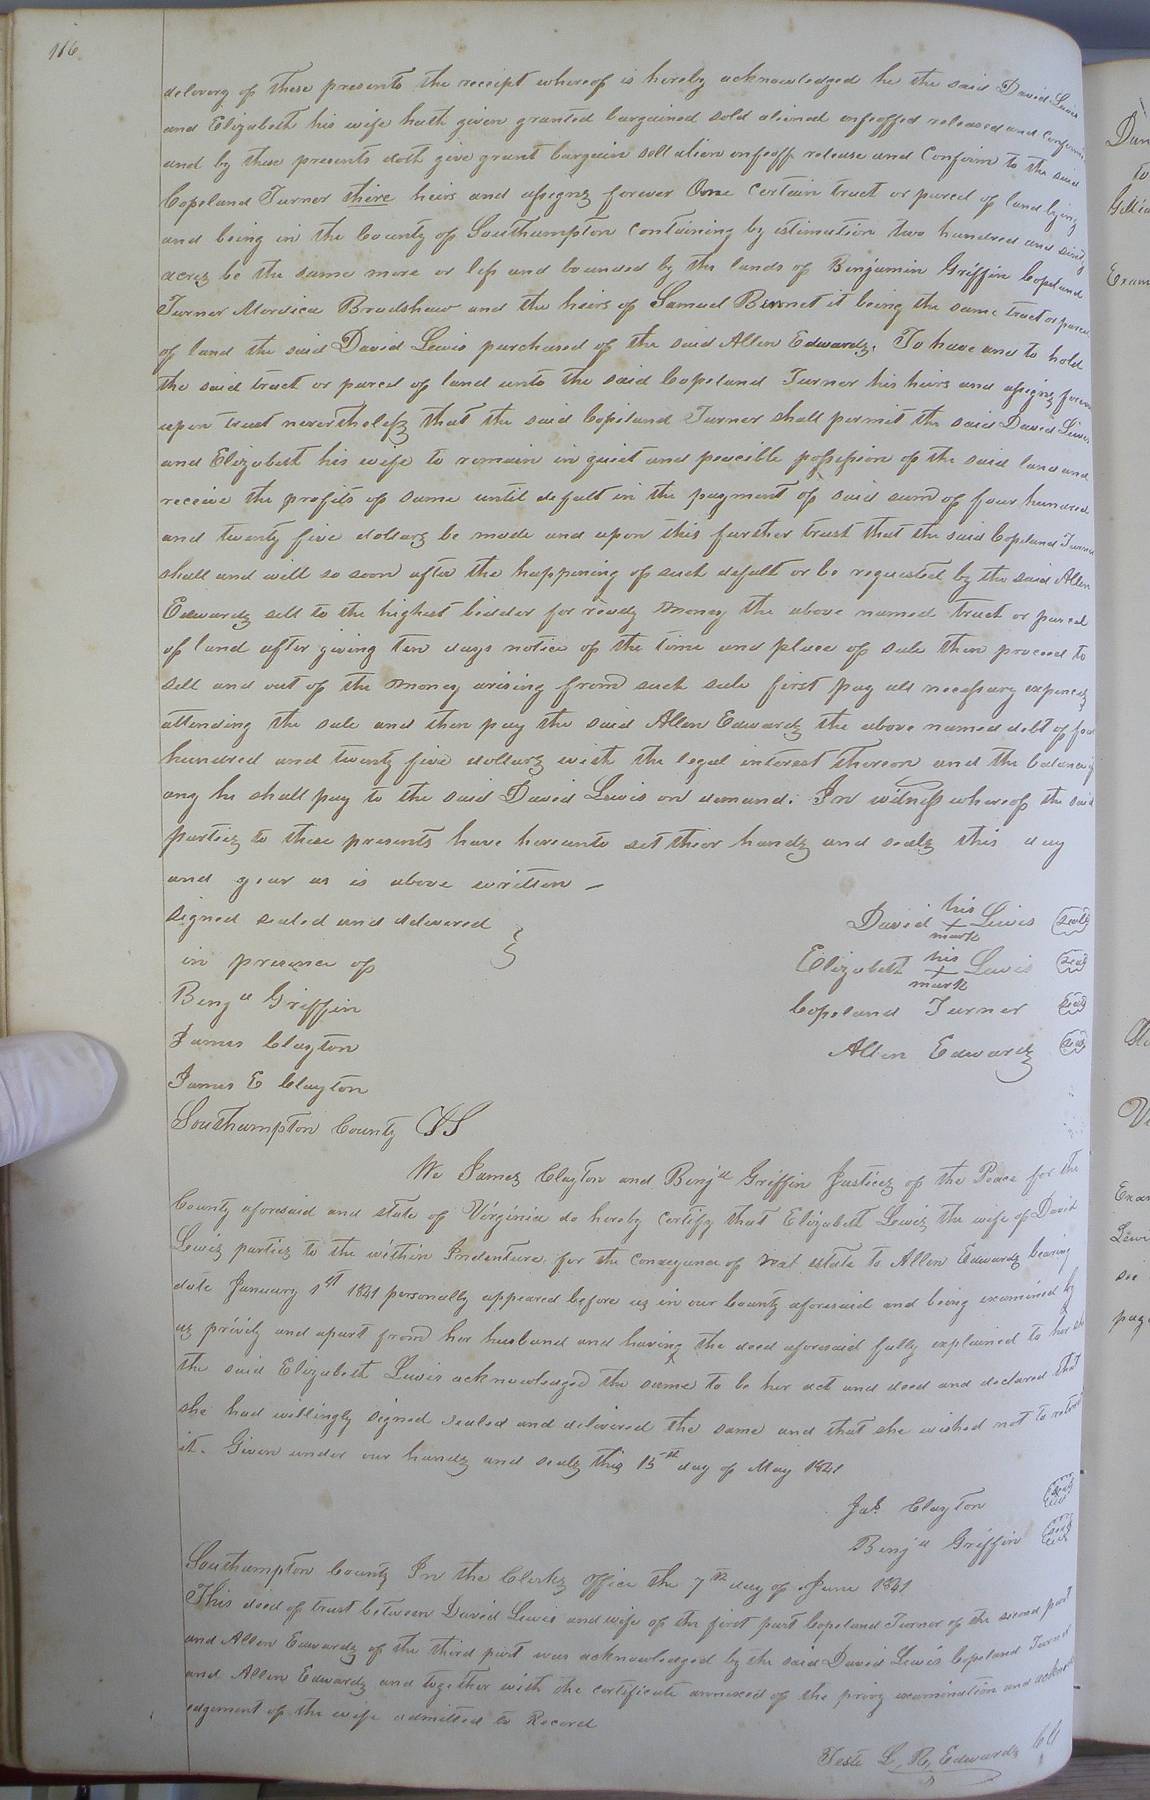 116
delovery of these presents the receipt whereof is hereby acknowledged he the said David Lewis
and Elizabeth his wife hath given granted bargained sold aliened enfeoffed released and confirm
and by these presents doth give grant bargain sell alien enfeoff release and Confirm to the said
Copeland Turner there heirs and assigns forever One certain tract or parcel of land lying
and being in the County of Southampton containing by estimation two hundred and sixty
acres be the same more or less and bounded by the lands of Benjamin Griffin Copeland
Turner Mordica Bradshaw and the heirs of Samuel Bennet it being the same tract or parcel
of land the said David Lewis purchased of the said Allen Edwards. To have and to hold
the said tract or parcel of land unto the said Copeland Turner his heirs and assigns forever
upon trust nevertheless that the said Copeland Turner shall permit the said David Lewis
and Elizabeth his wife to remain in quiet and peacible possession of the said land and
receive the profits of same until default in the payment of said sum of four hundred
and twenty five dollars be made and upon this further trust that the said Copeland Turner
shall and will so soon after the happening of such default or be requested by the said Allen
Edwards sell to the highest bidder for ready money the above named tract or parcel
of land after giving ten days notice of the time and place of sale then proceed to
sell and out of the money arising from such sale first pay all necessary expences
attending the sale and then pay the said Allen Edwards the above named debt of four
hundred and twenty five dollars with the legal interest thereon and the balance if
any he shall pay to the said David Lewis on demand. In witness whereof the said
parties to these presents have hereunto set their hands and seals this day
and year as is above written –
signed sealed and delivered
in presence of
Benja Griffin
James Clayton
James E Clayton
his
David + Lewis Seal
mark
his
Elizabeth + Lewis Seal
mark
Copeland Turner Seal
Allen Edwards Seal
Southampton County
We James Clayton and Benja Griffin Justices of the Peace for the
County aforesaid and state of Virginia do hereby certify that Elizabeth Lewis the wife of David
Lewis parties to the within Indenture for the conveyance of real estate to Allen Edwards bearing
date January 1st 1841 personally appeared before us in our County aforesaid and being examined by
us privily and apart from her husband and having the deed aforesaid fully explained to her she
the said Elizabeth Lewis acknowledged the same to be her act and deed and declared that
she had willingly signed sealed and delivered the same and that she wished not to retract
it. Given under our hands and seals this 15th day of May 1841
Jas. Clayton Seal
Benja Griffin Seal
Southampton County In the Clerks office the 7th day of June 1841
This deed of trust between David Lewis and wife of the first part Copeland Turner of the second part
and Allen Edwards of the third part was acknowledged by the said David Lewis Copeland Turner
and Allen Edwards and together with the certificate annexed of the privy examination and acknowl
edgement of the wife admitted to Record
Teste L. R. Edwards